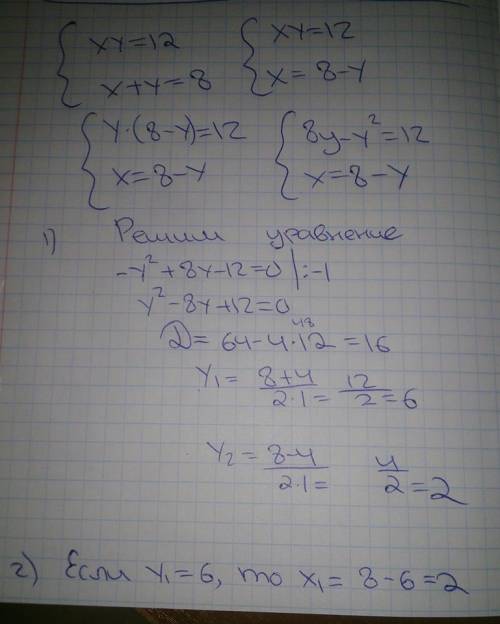 { xy=12
x+y=8 { xy=12
x= 8-y
{ y·(8-y)=12
x=8-y { 8y-y²=12
x=8-y
1) Решим уравнение
-y²+8y-12=0 |:-1
y²-8y+12=0
48
D= 64-4·12=16
y₁= 8+4/2·1= 12/2=6
y₂= 8-4/2·1= 4/2=2
2) Если y₁=6, то x₁= 8-6=2